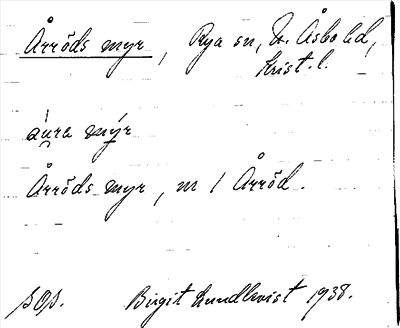 Årröds myr, Rya sn, N. Åsbo hd,
Krist. l.
áu̯ra mýr
Årröds myr, m / Årröd.
SOS. Birgit Lundkvist 1938.